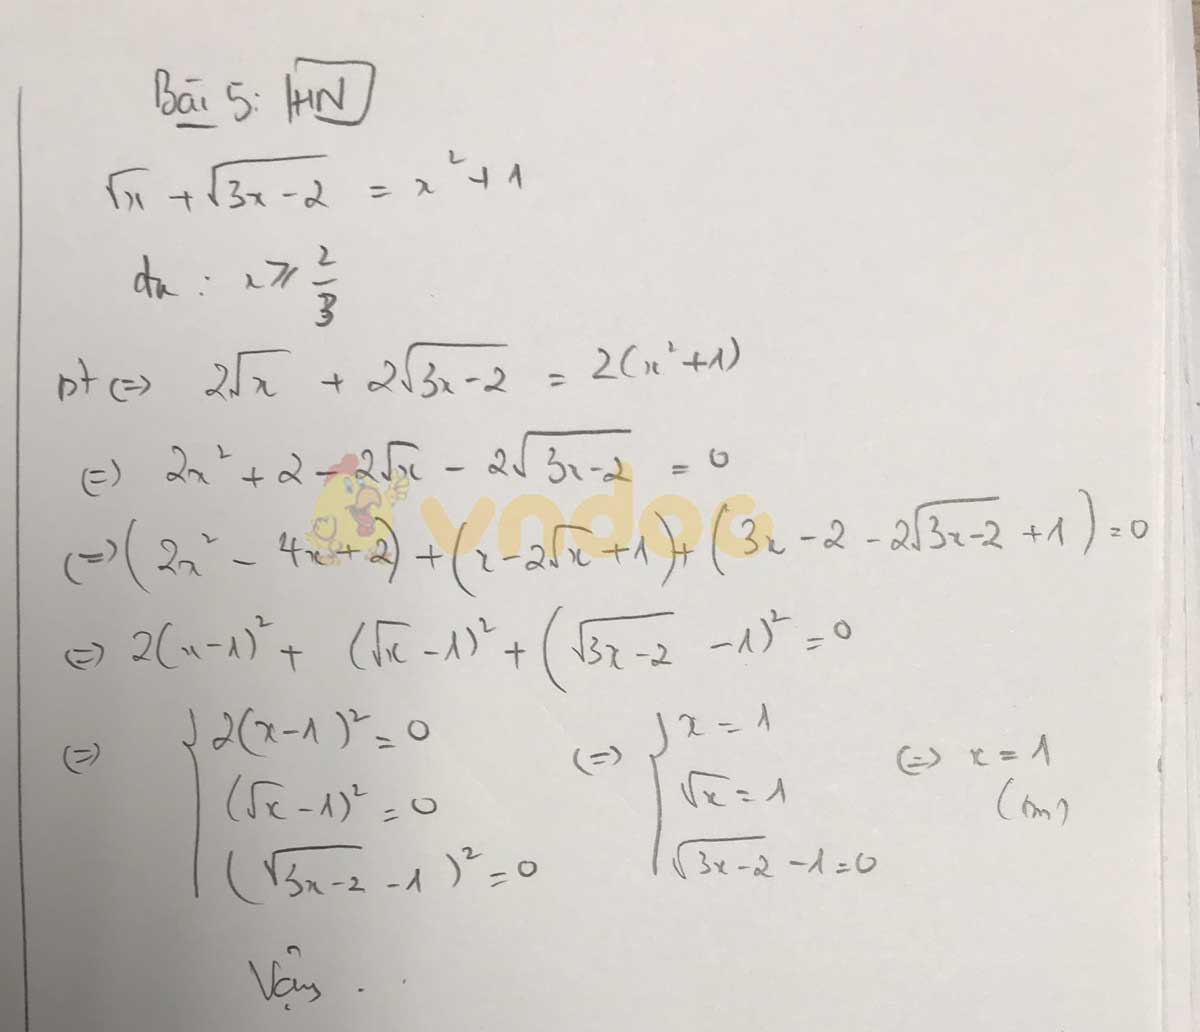 Bài 5: HN
√x + √(3x-2) = x² + 1
đk : x ⩾ 2/3
pt (=) 2√x + 2√(3x-2) = 2(x²+1)
(=) 2x² + 2 - 2√x - 2√(3x-2) = 0
(=) (2x² - 4x + 2) + (x - 2√x + 1) + (3x - 2 - 2√(3x-2) + 1) = 0
(=) 2(x-1)² + (√x - 1)² + (√(3x-2) - 1)² = 0
(=) { 2(x-1)² = 0 (=) { x = 1 (=) x = 1
(√x - 1)² = 0 √x = 1 (tm)
(√(3x-2) - 1)² = 0 √(3x-2) - 1 = 0
Vậy . . .
vndoc